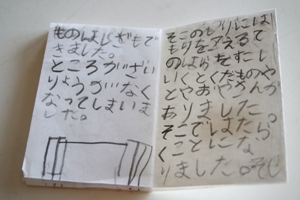 もで
きました。
ところがざい
りょうがなく
なってしまいま
した。
そこの
もりを
のはらをすこし
いくとくだものや
とやおやさんが
ありました。
そこではたら
くことにな
りました。そし